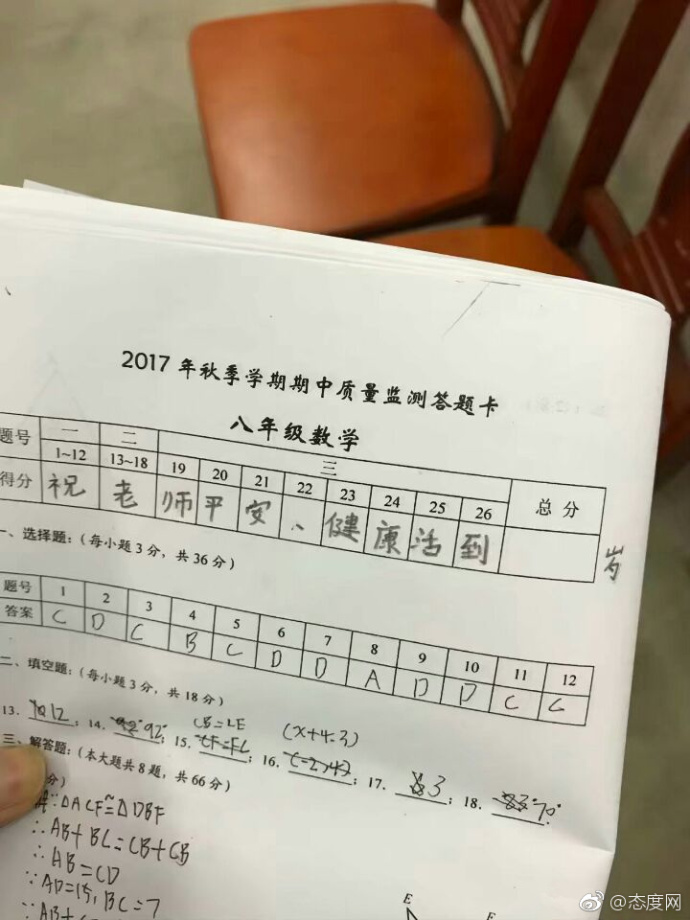 2017年秋季学期期中质量监测答题卡
八年级数学
题号 一 二 三 总分
1~12 13~18 19 20 21 22 23 24 25 26
得分 祝 老 师 平 安 、 健 康 活 到 岁
一、选择题:(每小题3分,共36分)
题号 1 2 3 4 5 6 7 8 9 10 11 12
答案 C D C B C D D A D D C C
二、填空题:(每小题3分,共18分)
CB=LE (x+4-3)
13. 12; 14. 92°; 15. ; 16. ; 17. 3; 18. 70°
三、解答题:(本大题共8题,共66分)
分)
∵△ACF≌△DBF
∴AB+BC=CB+CB
∴AB=CD
∵AD=15,BC=7
∴AB+
E
@态度网